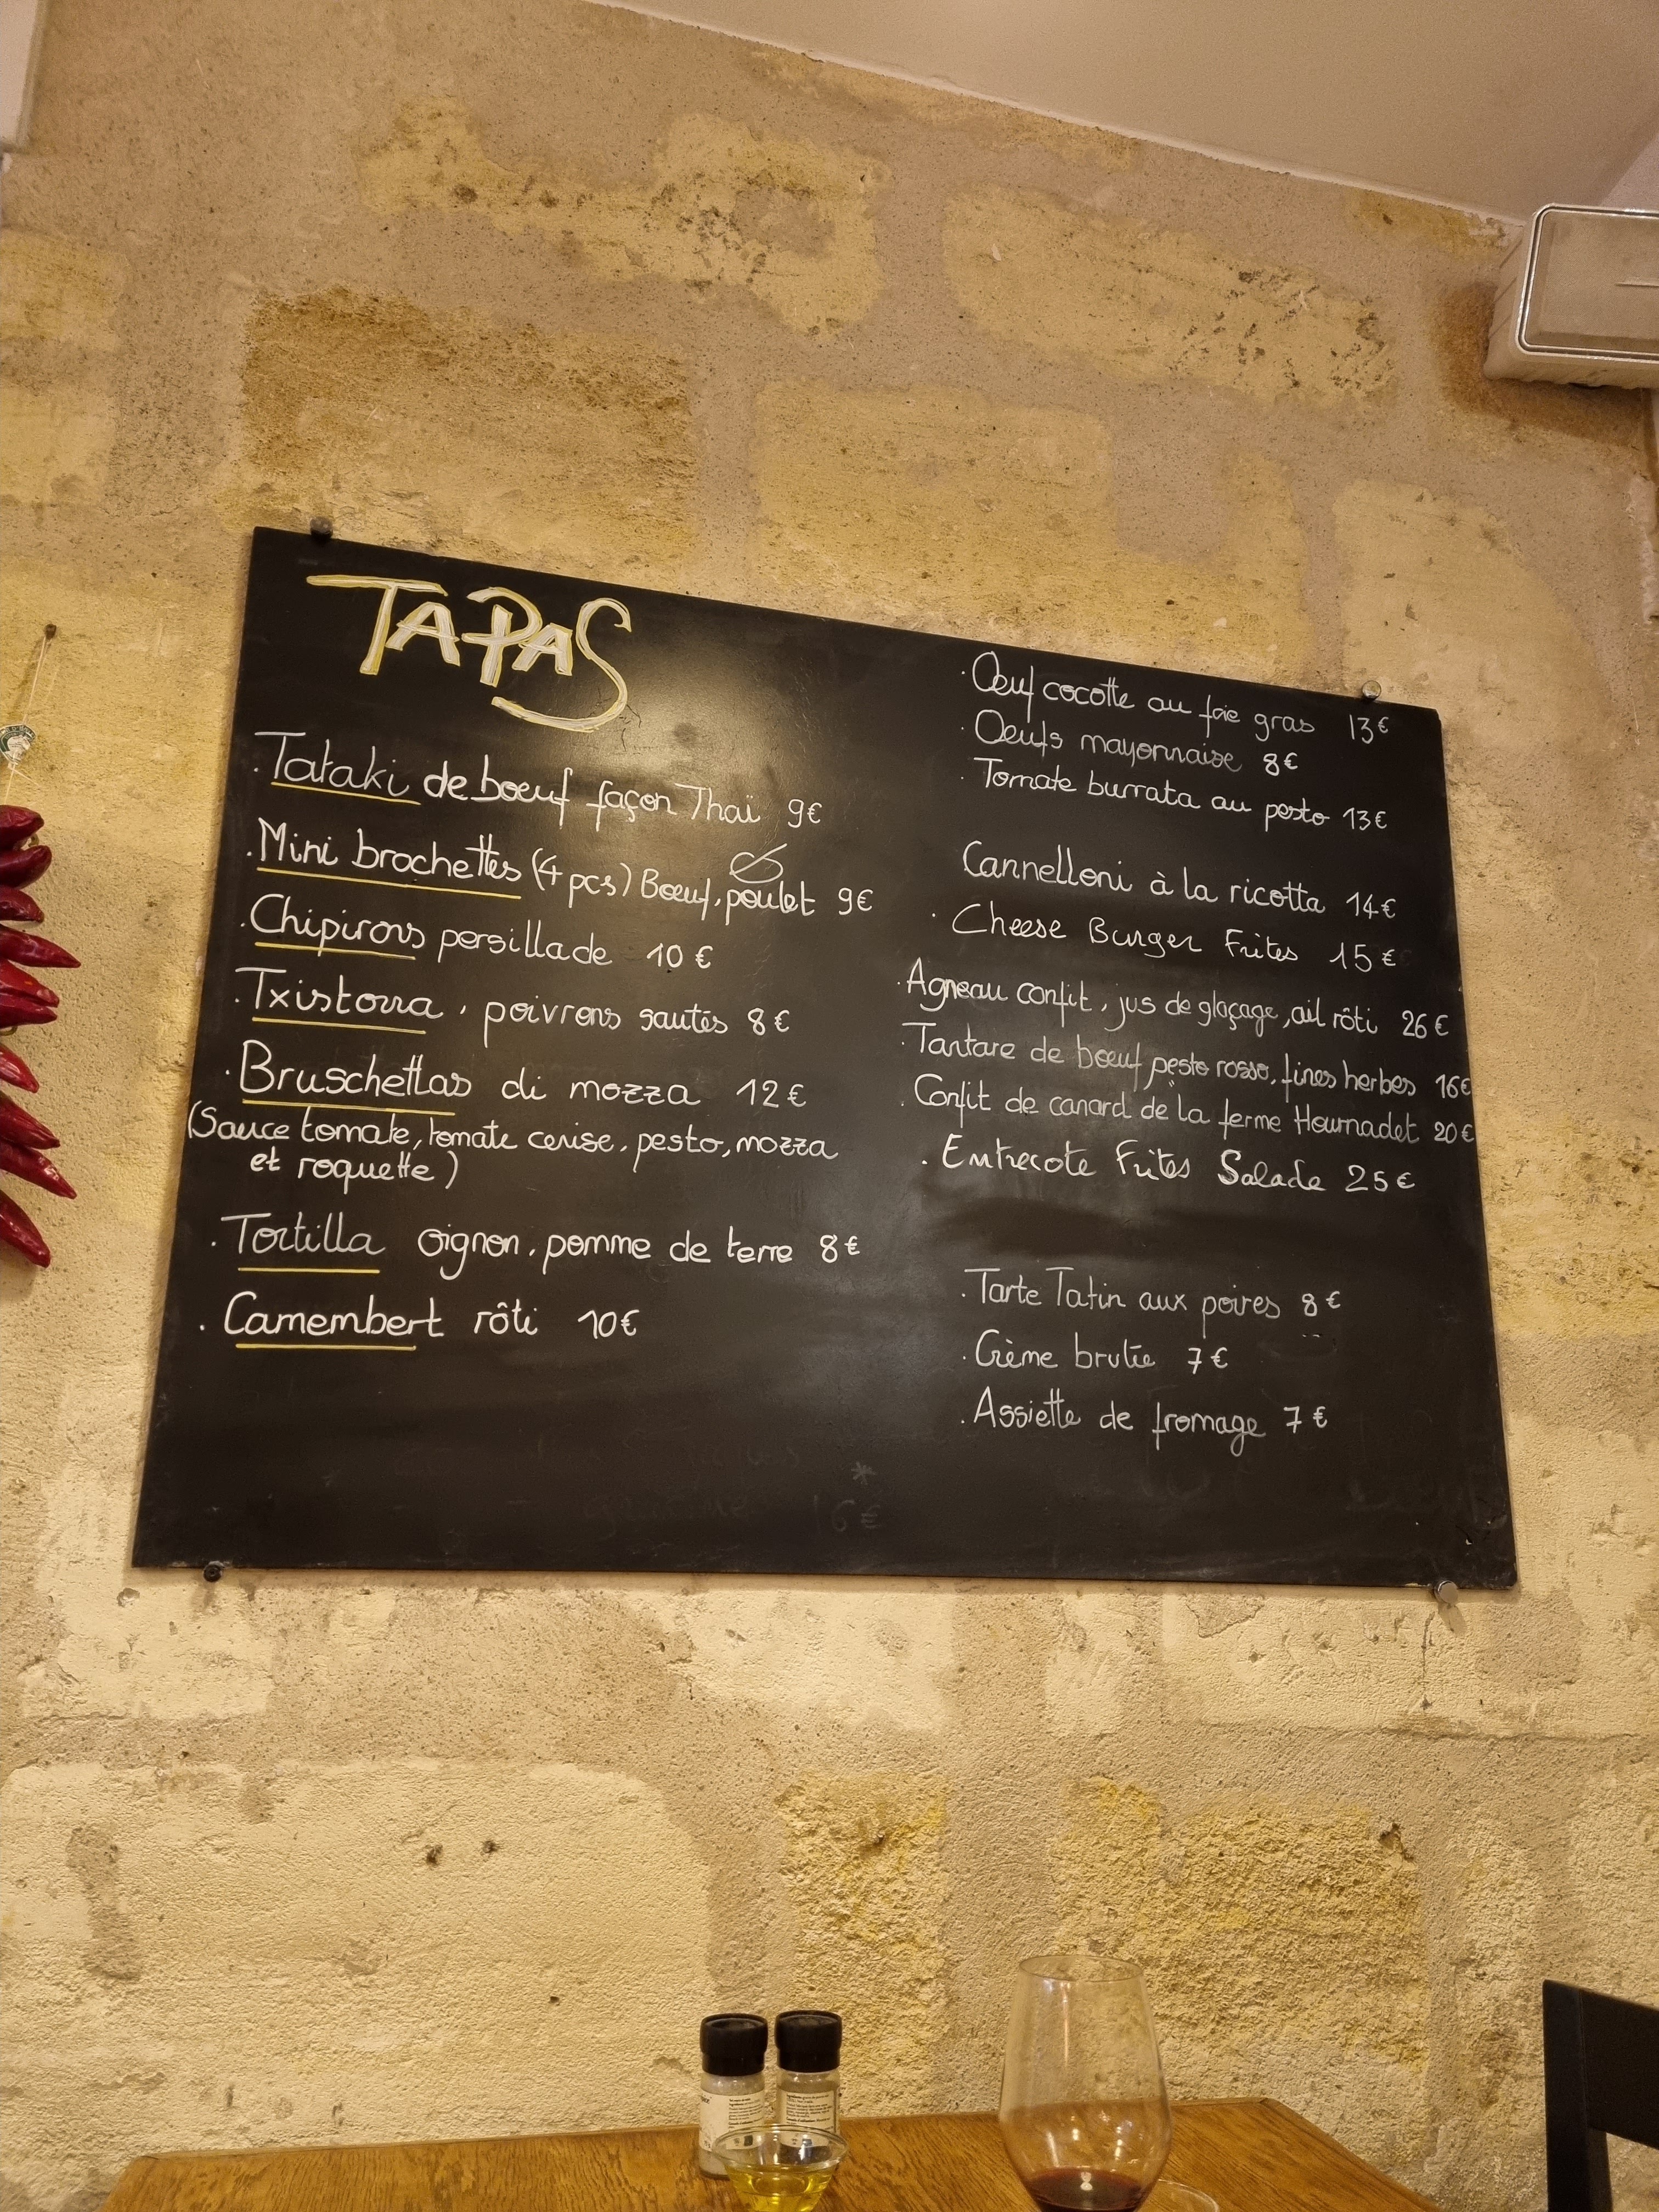 TAPAS
. Tataki de boeuf façon Thaï 9€
. Mini brochettes (4 pcs) Boeuf, poulet 9€
. Chipirons persillade 10 €
. Txistorra, poivrons sautés 8 €
. Bruschettas di mozza 12 €
(Sauce tomate, tomate cerise, pesto, mozza
et roquette)
. Tortilla oignon, pomme de terre 8 €
. Camembert rôti 10€
. Oeuf cocotte au foie gras 13€
. Oeufs mayonnaise 8€
. Tomate burrata au pesto 13€
Cannelloni à la ricotta 14€
. Cheese Burger Frites 15 €
. Agneau confit, jus de glaçage, ail rôti 26 €
. Tartare de boeuf pesto rosso, fines herbes 16€
. Confit de canard de la ferme Hournadet 20€
. Entrecote Frites Salade 25€
. Tarte Tatin aux poires 8 €
. Crème brulée 7 €
. Assiette de fromage 7 €
16€